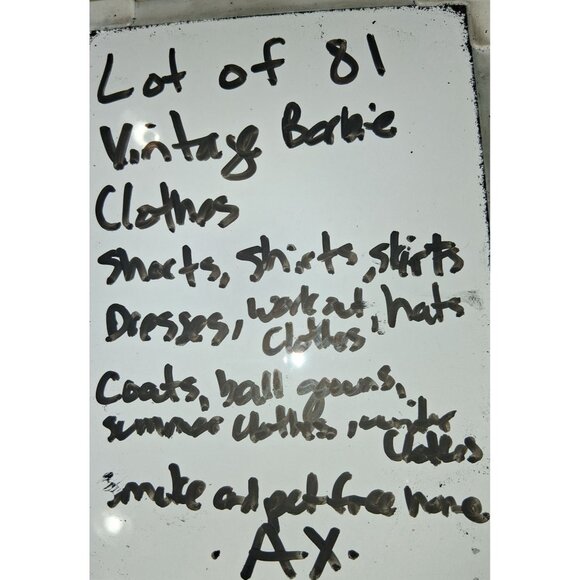 Lot of 81
Vintage Barbie
Clothes
Shorts, Shirts, skirts
Dresses, work out, hats
Clothes
Coats, ball gowns,
summer clothes, winter
Clothes
smoke and pet free home
. AX .